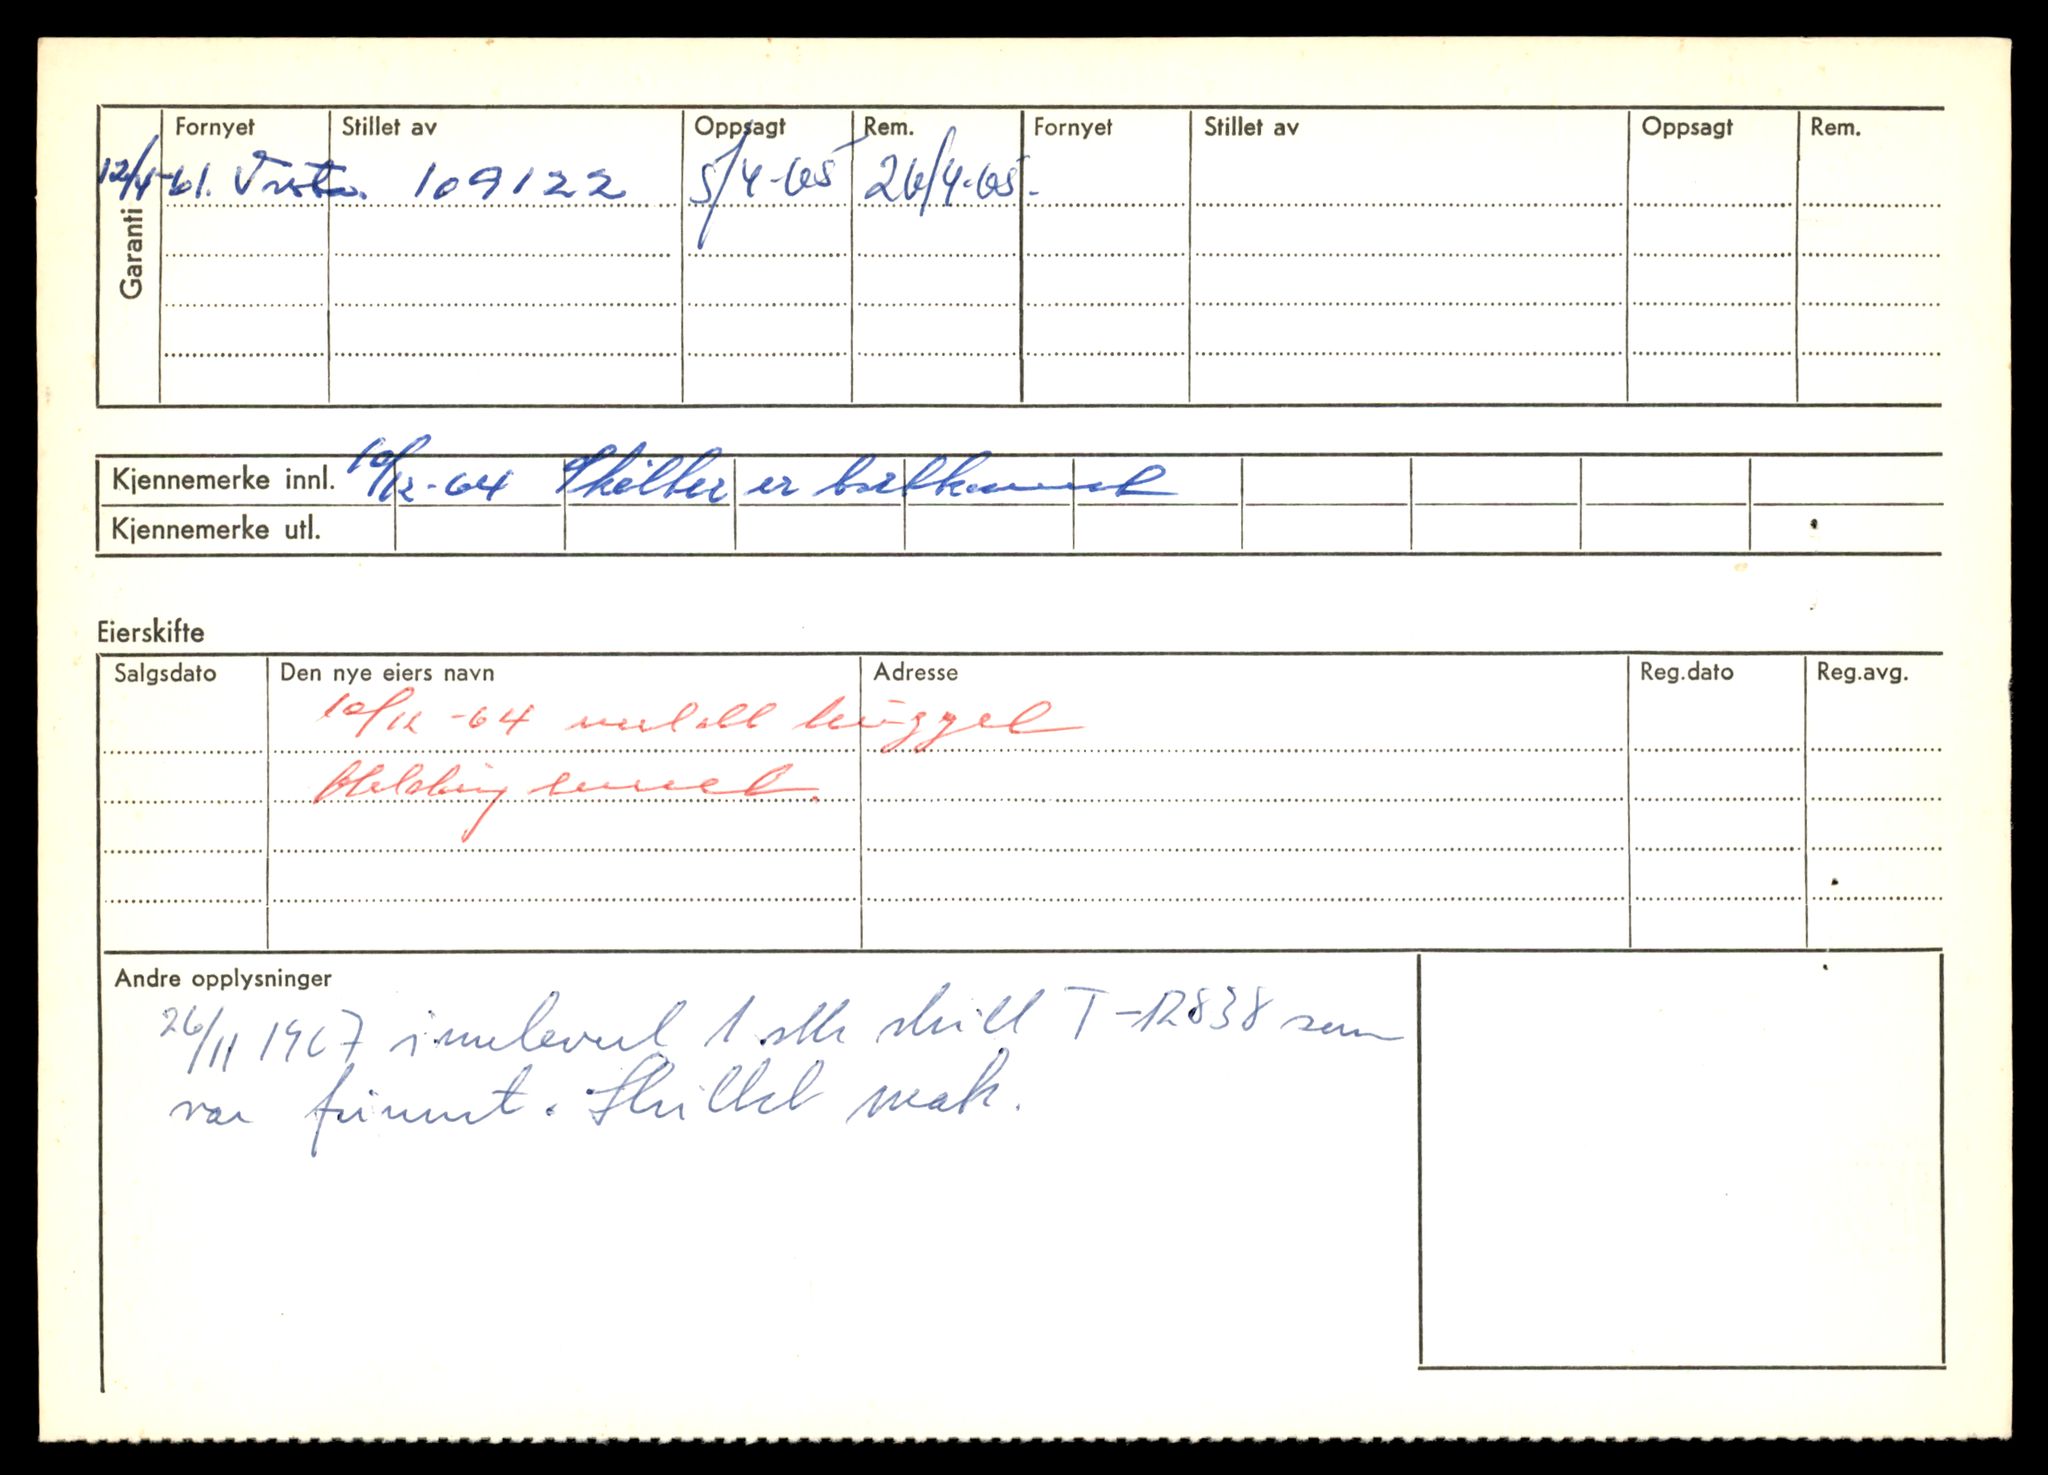 Garanti
Fornyet Stillet av Oppsagt Rem. Fornyet Stillet av Oppsagt Rem.
12/4-61. 109122 5/4-65 26/4-65.
Kjennemerke innl. 10/12-64 Skilter er bortkommet
Kjennemerke utl.
Eierskifte
Salgsdato Den nye eiers navn Adresse Reg.dato Reg.avg.
10/12-64 meldt hugget
Melding sendt.
Andre opplysninger
26/11 1967 innlevert 1 stk skilt T-12838 som
var funnet. Skiltet mak.